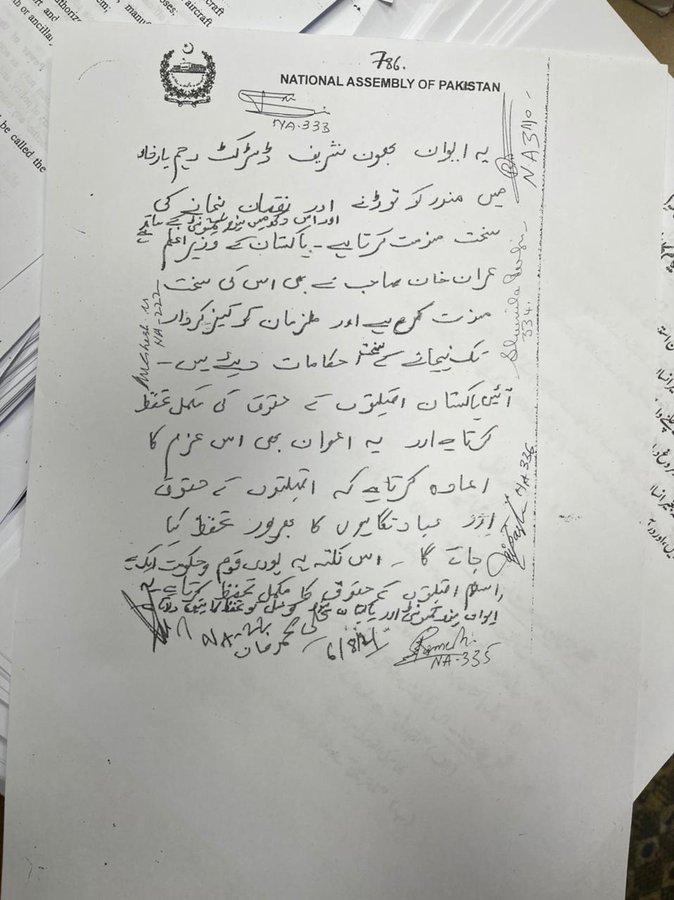 786.
NATIONAL ASSEMBLY OF PAKISTAN
NA-333
یہ ایوان بھونگ شریف ڈسٹرکٹ رحیم یار خان
میں مندر کو توڑنے اور نقصان پہنچانے کی
اور اس دکھ میں ہندو کمیونٹی کے ساتھ ہے
سخت مزمت کرتا ہے - پاکستان کے وزیر اعظم
عمران خان صاحب نے بھی اس کی سخت
مزمت کی ہے اور ملزمان کو کیفر کردار
تک پہنچانے کے سخت احکامات دیئے ہیں -
آئین پاکستان اقلیتوں کے حقوق کی مکمل تحفظ
کرتا ہے اور یہ ایوان بھی اس عزم کا
اعادہ کرتا ہے کہ اقلیتوں کے حقوق
اور عبادتگاہوں کا بھرپور تحفظ کیا
جائے گا - اس نکتہ پہ پوری قوم و حکومت ایک ہے
اسلام اقلیتوں کے حقوق کا مکمل تحفظ کرتا ہے
ایوان ہندو کمیونٹی اور پاکستان کو تحفظ کا یقین دلاتا ہے
علی محمد خان
6/8/21
NA-335
NA-336
334
NA-222